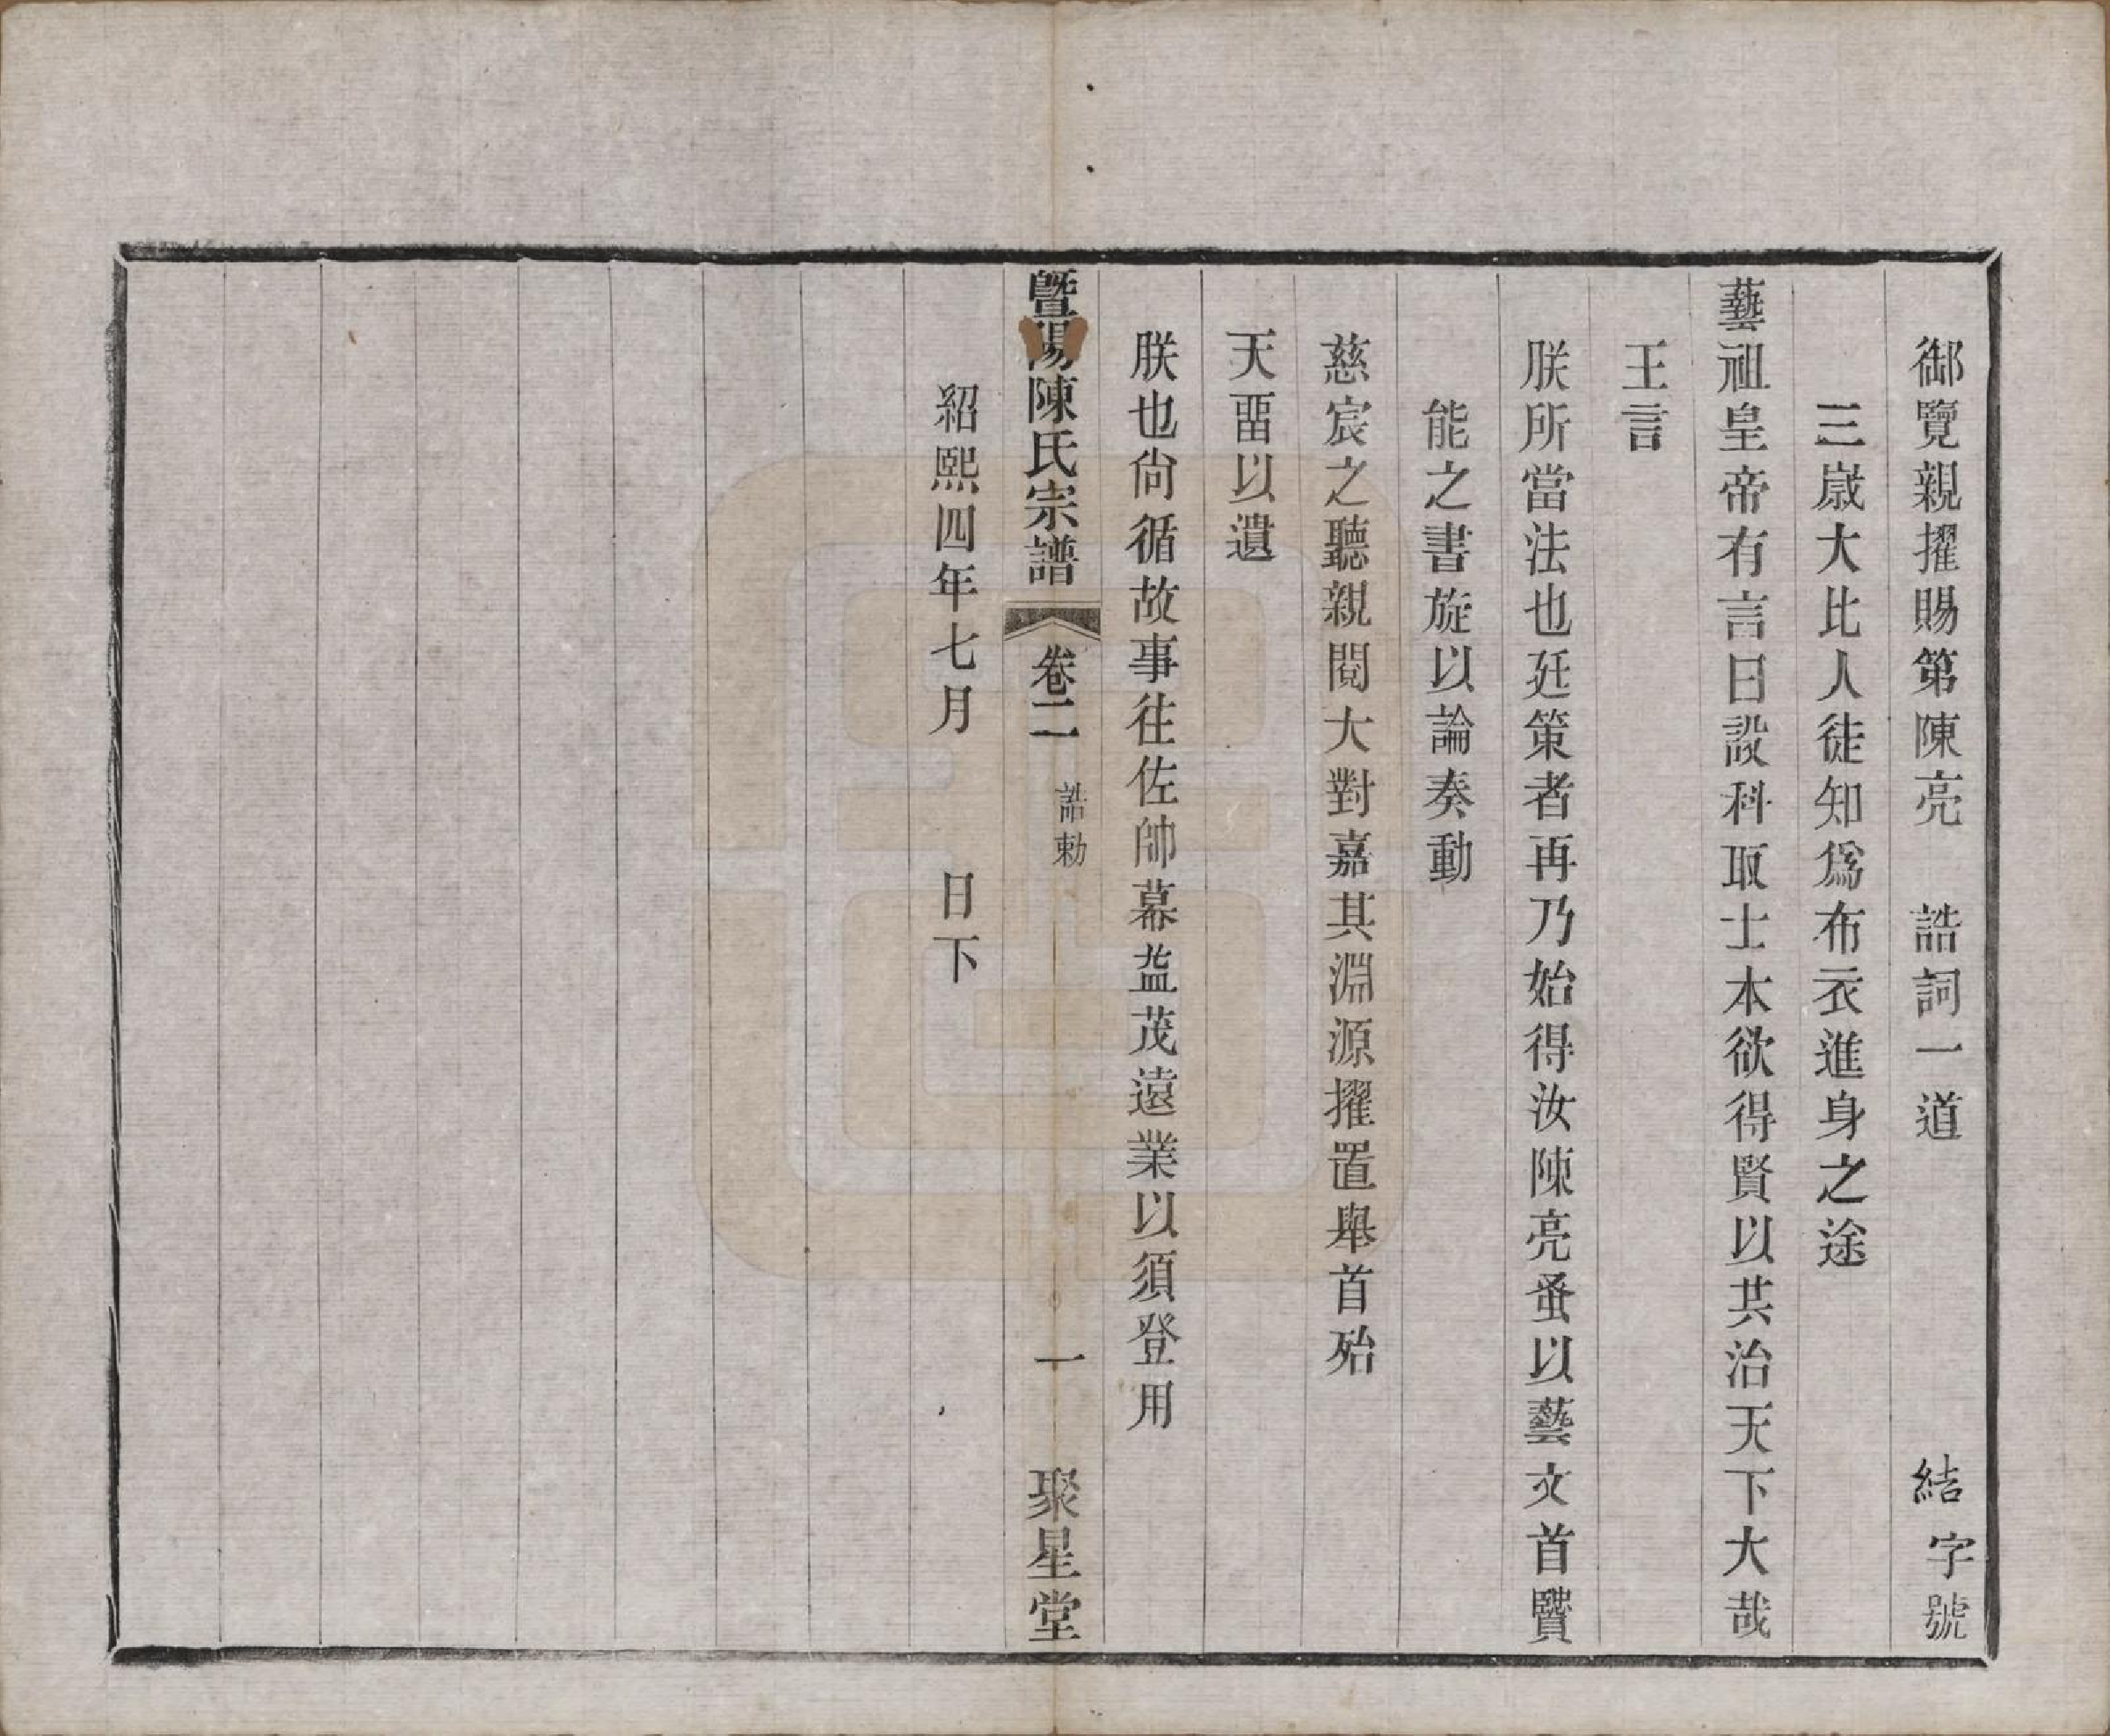 御覽親擢賜第陳亮　誥詞一道　結字號
三歲大比人徒知爲布衣進身之途
藝祖皇帝有言曰設科取士本欲得賢以共治天下大哉
王言
朕所當法也廷策者再乃始得汝陳亮蚤以藝文首贒
能之書旋以論奏動
慈宸之聽親閱大對嘉其淵源擢置舉首殆
天畱以遺
朕也尙循故事往佐帥幕益茂遠業以須登用
暨陽陳氏宗譜　卷二　誥勅　一　聚星堂
紹熙四年七月　日下